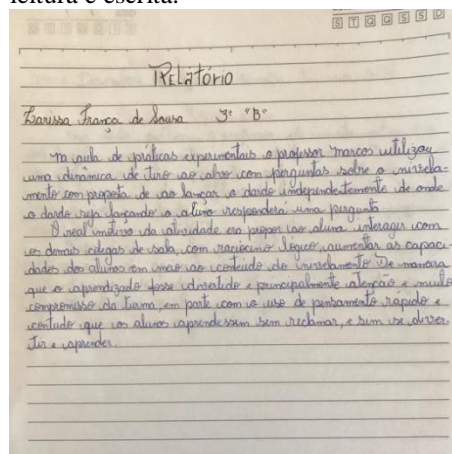 leitura e escrita.
S T Q Q S S D
Relatório
Larissa França de Sousa 3º "B"
Na aula de práticas experimentais o professor Marcos utilizou
uma dinâmica de tiro ao alvo com perguntas sobre o nivela-
mento com proposta de ao lançar o dardo independentemente de onde
o dardo seja lançando o aluno responderá uma pergunta
O real motivo da atividade era propor ao aluno interagir com
os demais colegas de sala, com raciocínio lógico, aumentar as capaci-
dades dos alunos em meio ao conteúdo do nivelamento De maneira
que o aprendizado fosse divertido e principalmente atenção e muito
compromisso da turma, em parte com o uso de pensamento rápido e
contudo que os alunos aprendessem sem reclamar, e sim se diver-
tir e aprender.